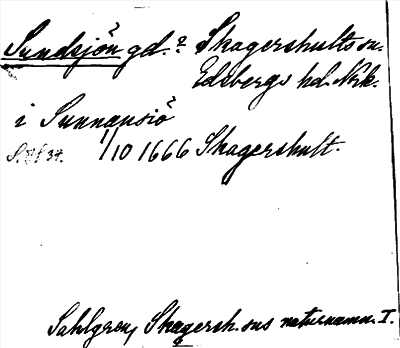 Sundsjön gd.? Skagershults sn.
Edsbergs hd. Nrk.
i Sunnansiö
1/10 1666 Skagershult.
Sahlgren, Skagersh. sns naturnamn. I.